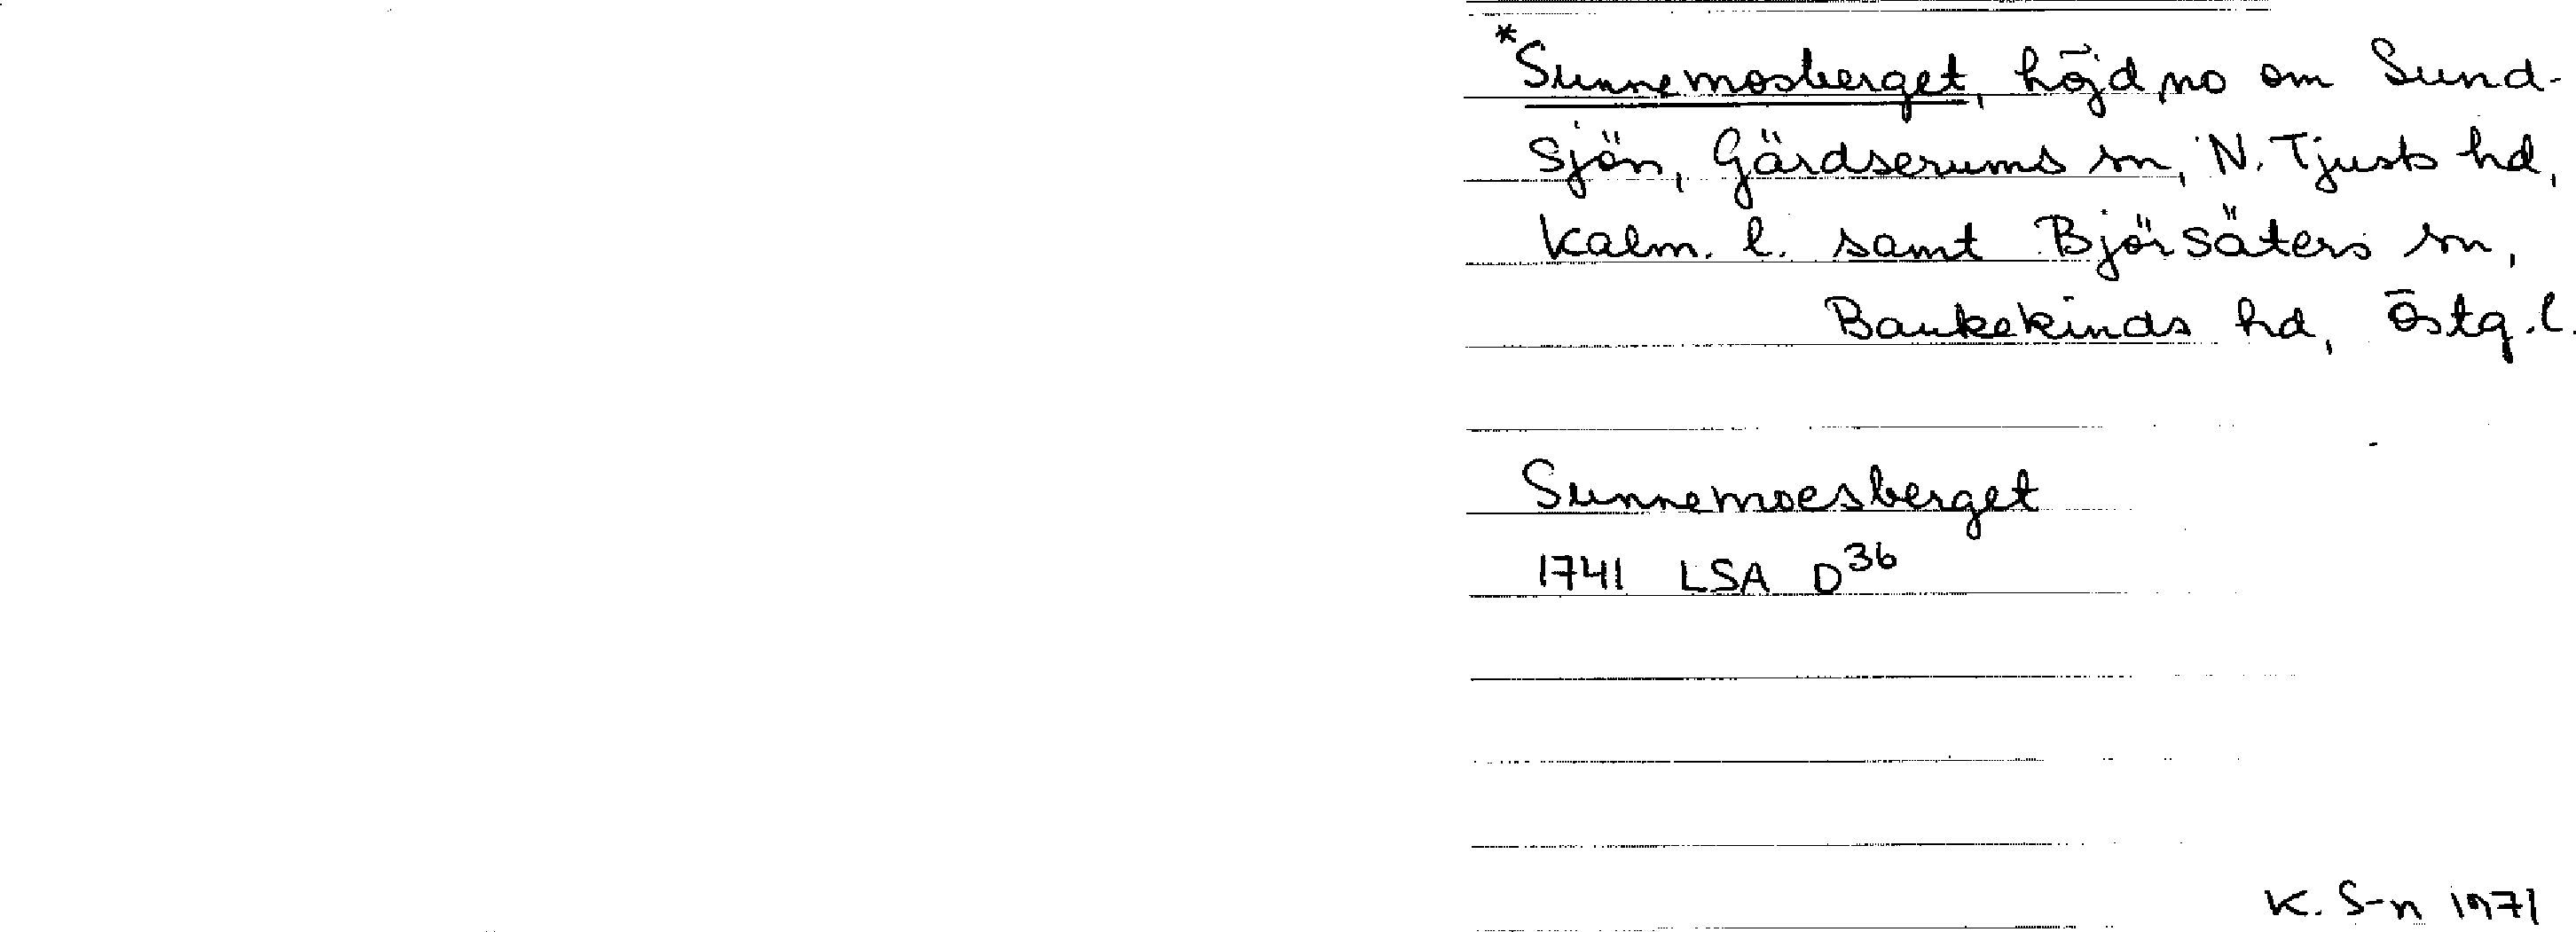 *Sunnemosberget, höjd no om Sund-
sjön, Gärdserums sn, N. Tjusts hd,
Kalm. l. samt Björsäters sn,
Bankekinds hd, Östg. l.
Sunnemoesberget
1741 LSA D36
K. S-n 1971